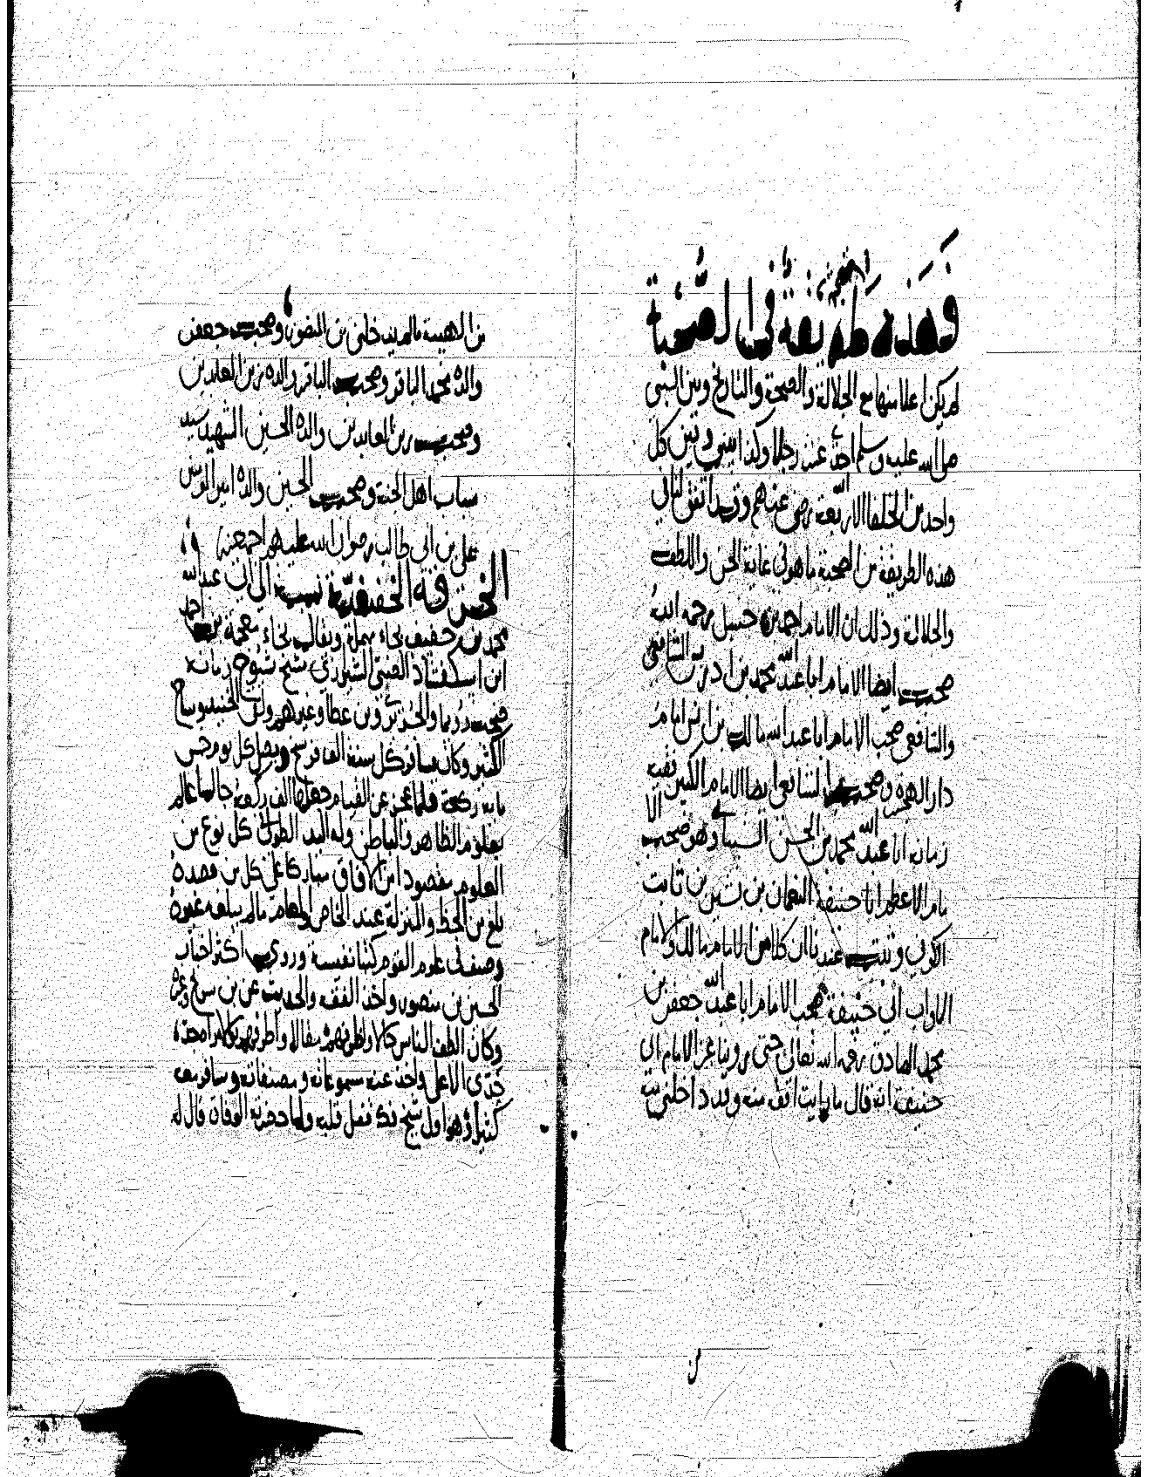 فهذه طريقة في الصحبة
لم يكن اعلا منها مع الجلالة والصحة والتاريخ وبين النبي
صلى الله عليه وسلم احد عشر رجلا وكذا بيني وبين كل
واحد من الخلفا الاربعة رضي عنهم وقد اتفق لنا في
هذه الطريقة من الصحبة ما هو في غاية الحسن واللطف
والجلالة وذلك ان الامام احمد بن حنبل رحمه الله
صحب ايضا الامام ابا عبد الله محمد بن ادريس الشافعي
والشافعي صحب الامام ابا عبد الله مالك بن انس امام
دار الهجرة وصحب الشافعي ايضا الامام الكبير فقيه
زمانه ابا عبد الله محمد بن الحسن الشيباني وهو صحب الا
مام الاعظم ابا حنيفة النعمان بن ثابت
الكوفي وثبت عندنا ان كلا من الامام مالك والامام
ابي حنيفة صحب الامام ابا عبد الله جعفر بن
محمد الصادق رحمه الله تعالى حتى روينا عن الامام ابي
حنيفة انه قال ما رايت افقه منه وقد داخلني
من الهيبة ما لم يدخلني من المنصور وصحب جعفر
والده محمد الباقر وصحب الباقر والده زين العابدين
وصحب زين العابدين والده الحسين الشهيد سيد
شباب اهل الجنة وصحب الحسين والده امير المومنين
علي بن ابي طالب رضوان الله عليهم اجمعين
الخرقة الخفيفية نسبة الى ابي عبد الله
محمد بن خفيف بخاء مهملة ويقال بخاء معجمة بن احمد
ابن اسكفشاد الضبي الشيرازي شيخ شيوخ زمانه
صحب رويما والجريري وبن عطا وغيرهم ولقي الجنيد وساح
الكثير وكان يسافر كل سنة الف فرسخ ويصلي كل يوم خمس
ماية ركعة فلما عجز عن القيام جعلها الف ركعة جالسا عالم
بعلوم الظاهر والباطن وله اليد الطولى في كل نوع من
العلوم مقصودا من الافاق مباركا على كل من قصده
بلغ من الحظ والمنزلة عند الخاص والعام ما لم يبلغه غيره
وصنف في علوم القوم كتبا نفيسة وروى اكثر اخبار
الحسين بن منصور واخذ الفقه والحديث عن بن سريج وغيره
وكان الطف الناس كلاما
جدي الاعلى واخذ عنه مسموعاته ومصنفاته وسافر معه
كثيرا وهو اول شيخ ولما حضرته الوفاة قال له